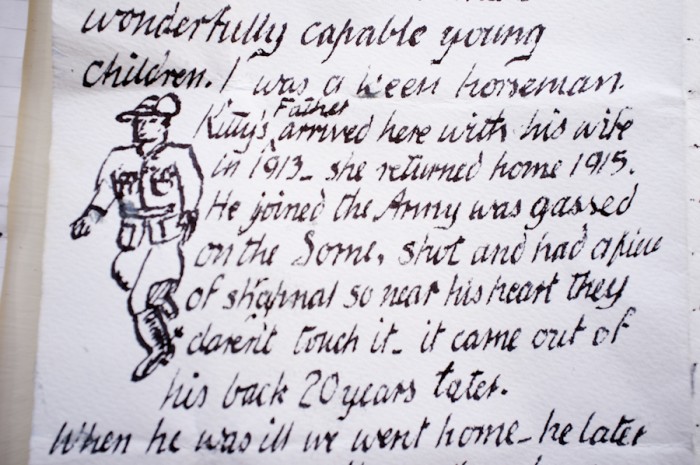 wonderfully capable young
children. I was a keen horseman.
Kitty's Father arrived here with his wife
in 1913_ she returned home 1915.
He joined the Army was gassed
on the Some, shot and had a piece
of shapnal so near his heart they
daren't touch it_ it came out of
his back 20 years later.
When he was ill we went home_ he later